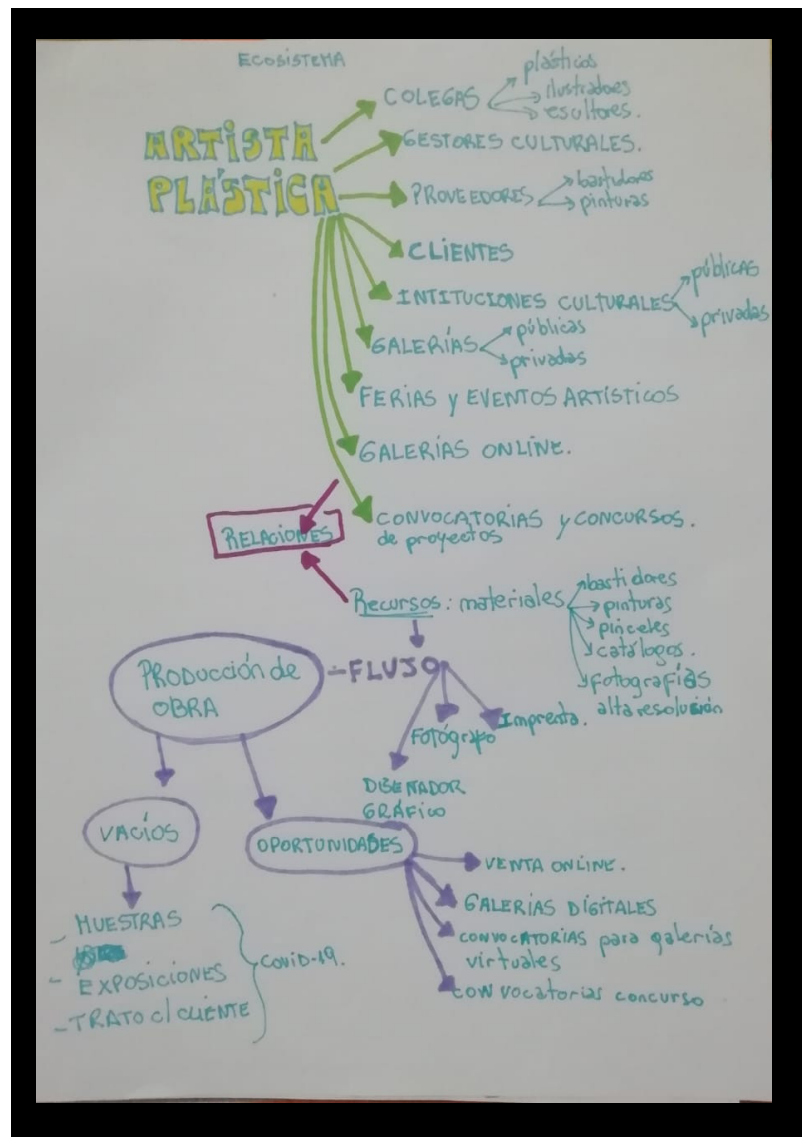 ECOSISTEMA
ARTISTA
PLÁSTICA
COLEGAS
plásticos
ilustradores
escultores.
GESTORES CULTURALES.
PROVEEDORES
bastidores
pinturas
CLIENTES
INTITUCIONES CULTURALES
públicas
privadas
GALERÍAS
públicas
privadas
FERIAS y EVENTOS ARTÍSTICOS
GALERÍAS ONLINE.
CONVOCATORIAS y CONCURSOS.
de proyectos
RELACIONES
Recursos: materiales
bastidores
pinturas
pinceles
catálogos.
fotografías
alta resolución
PRODUCCIÓN de
OBRA
-FLUJO
Fotógrafo
Imprenta.
DISEÑADOR
GRÁFICO
VACÍOS
OPORTUNIDADES
VENTA ONLINE.
GALERÍAS DIGITALES
CONVOCATORIAS para galerías
virtuales
CONVOCATORIAS CONCURSO
- MUESTRAS
- EXPOSICIONES
- TRATO c/ CLIENTE
COVID-19.